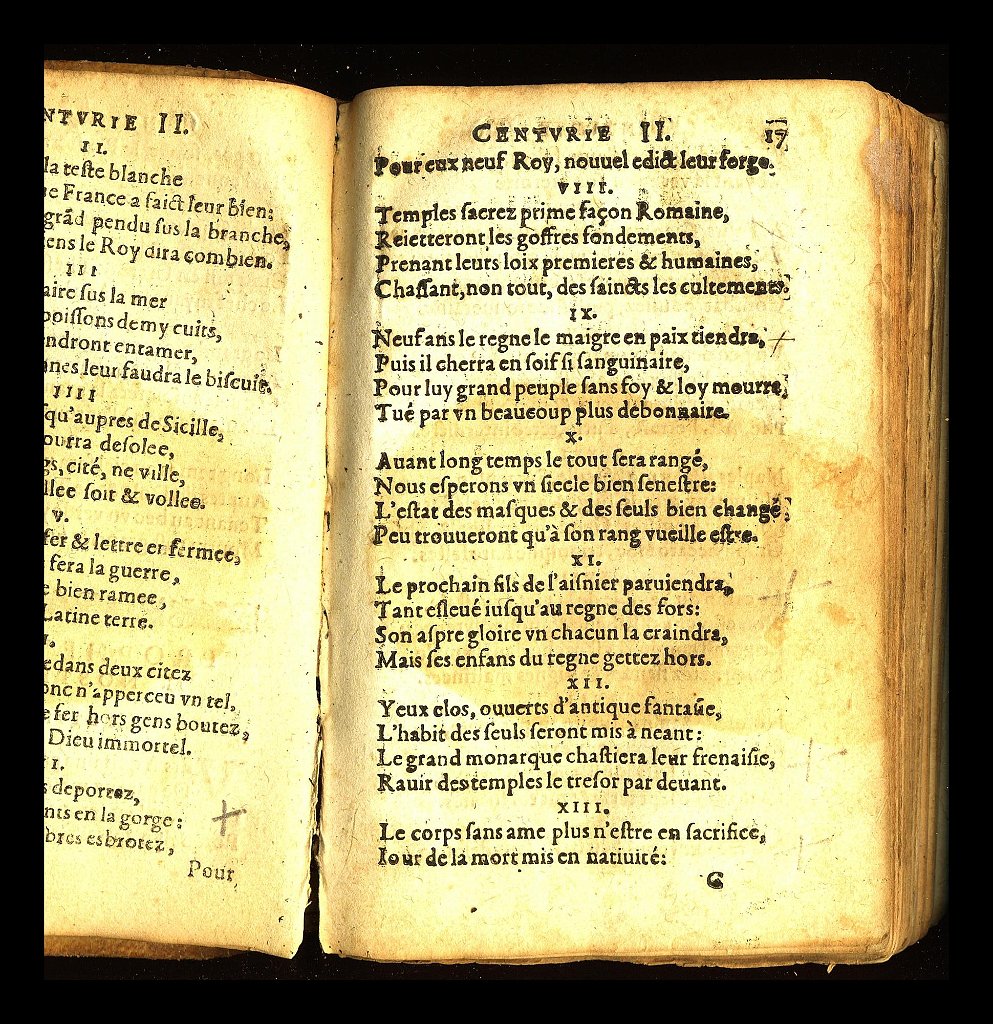 NTVRIE II.
II.
la teste blanche
France a faict leur bien:
grãd pendu sus la branche,
le Roy dira combien.
III
aire sus la mer
poissons demy cuits,
ndront entamer,
leur faudra le biscuit.
IIII
squ'aupres de Sicille,
ourra desolee,
gs, cité, ne ville,
llee soit & vollee.
V.
fer & lettre enfermee,
fera la guerre,
bien ramee,
Latine terre.
I.
dans deux citez
onc n'apperceu vn tel,
fer hors gens boutez,
Dieu immortel.
I.
deportez,
nts en la gorge:
bres esbrotez,
Pour
CENTVRIE II. 17
Pour eux neuf Roy, nouuel edict leur forge.
VIII.
Temples sacrez prime façon Romaine,
Reietteront les goffres fondements,
Prenant leurs loix premieres & humaines,
Chassant, non tout, des saincts les cultements.
IX.
Neuf ans le regne le maigre en paix tiendra,
Puis il cherra en soif si sanguinaire,
Pour luy grand peuple sans foy & loy mourra,
Tué par vn beaucoup plus debonnaire.
X.
Auant long temps le tout sera rangé,
Nous esperons vn siecle bien senestre:
L'estat des masques & des seuls bien changé,
Peu trouueront qu'à son rang vueille estre.
XI.
Le prochain fils de l'aisnier paruiendra,
Tant esleué iusqu'au regne des fors:
Son aspre gloire vn chacun la craindra,
Mais ses enfans du regne gettez hors.
XII.
Yeux clos, ouuerts d'antique fantasie,
L'habit des seuls seront mis à neant:
Le grand monarque chastiera leur frenaisie,
Rauir des temples le tresor par deuant.
XIII.
Le corps sans ame plus n'estre en sacrifice,
Iour de la mort mis en natiuité:
C